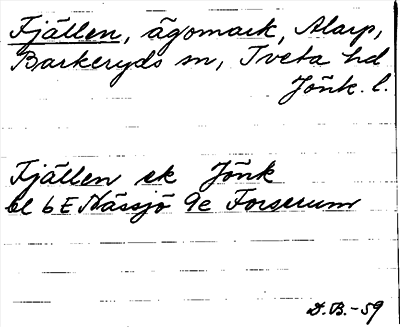 Fjällen, ägomark, Alarp,
Barkeryds sn, Tveta hd
Jönk. l.
Fjällen ek Jönk
bl 6E Nässjö 9e Forserum
D.B.-59